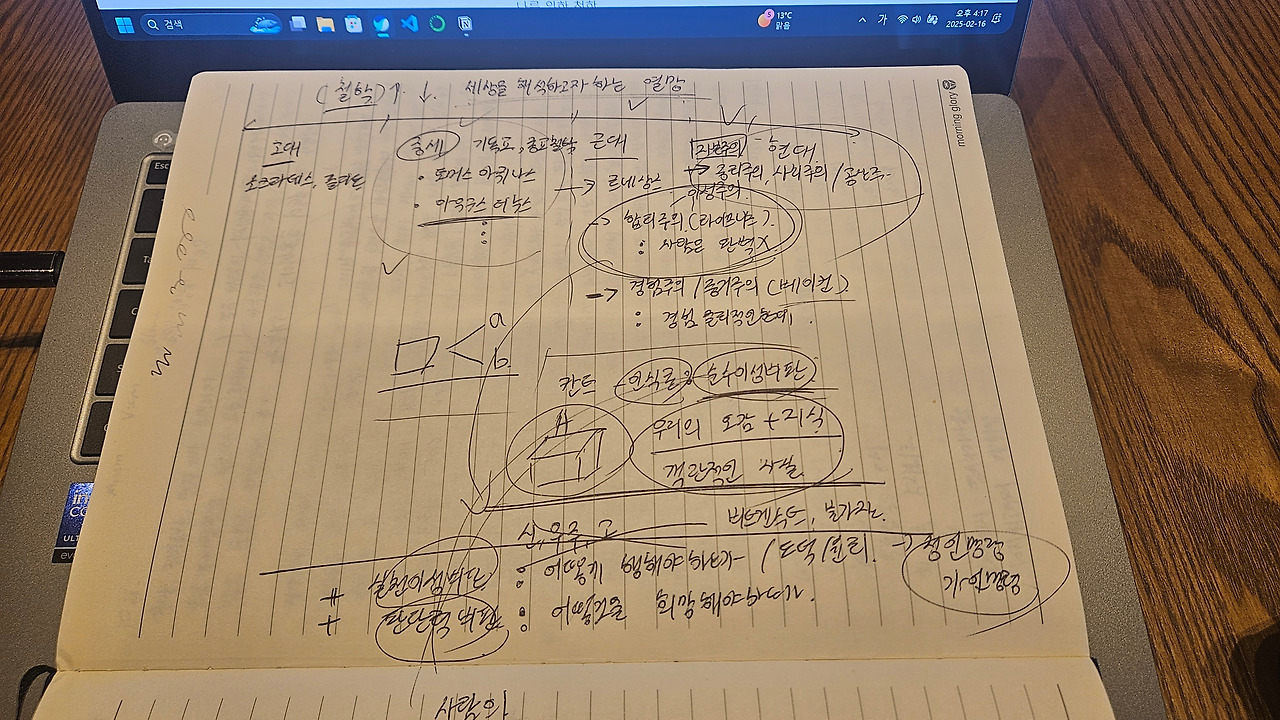 나를 위한 철학
검색
13°C
맑음
가
오후 4:17
2025-02-16
(철학)↑ ↓. 세상을 해석하고자 하는 열망
morning glory
고대
소크라테스, 플라톤
중세, 기독교, 종교철학
· 토머스 아퀴나스
· 아우구스티누스
근대
→ 르네상스
자본주의 현대
→ 공리주의, 사회주의 / 공산주의
이성주의
→ 합리주의 (라이프니츠).
: 사람은 완벽X
→ 경험주의 / 증거주의 (베이컨)
: 경험, 물리적인
a
b
칸트 인식론, 순수이성비판
우리의 오감 + 지식
객관적인 사실
신, 우주,
비트겐슈타인, 불가지론
+ 실천이성비판 : 어떻게 행해야 하는가 / 도덕/윤리. → 정언명령
가언명령
+ 판단력 비판 : 어떤것을 희망해야하는가.
Esc